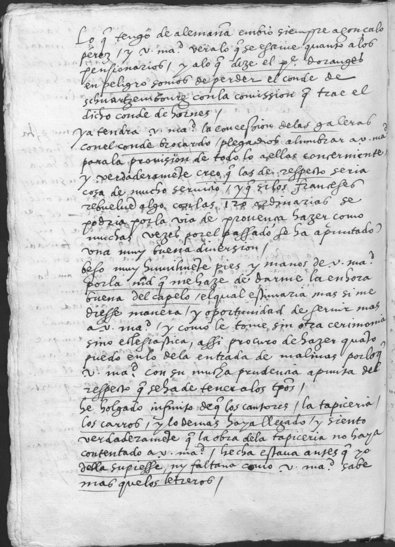 Lo q̃ tengo de alemaña embio siempre a gonçalo
perez / y v. mag.d vera lo q̃ se escrive quanto a los
pensionarios / y a lo q̃ dize el p.e d'oranges
en peligro somos de perder el conde de
schuartzembourg con la comission q̃ trae el
dicho conde de hornes /
ya tendra v. ma.d la concession de las galeras
con el conde / plega a dios alumbrar a v. ma.d
para la provision de todo lo a ellas concerniente
y verdaderamente creo q̃ las de respecto seria
cosa de mucho servicio / y q̃ si los franceses
rebuelven algo con las ordinarias se
podria por la via de provença hazer como
muchas vezes por el passado se ha apuntado
una muy buena diversion /
beso muy humilmẽte pies y manos de v. ma.d
por la m̃d q̃ me haze de darme la enhora
buena del capelo / el qual estimaria mas si me
diesse manera / y oportunidad de servir mas
a v. ma.d / y como le tome, sin otra cerimonia
sino ecclesiastica, assi procuro de hazer quãto
puedo en lo de la entrada de malinas por lo q̃
v. ma.d con su mucha prudencia apunta del
respecto q̃ se ha de tener a los tp̃os /
he holgado infinito de q̃ los cantores / la tapiceria /
los carros / y lo demas haya llegado / y siento
verdaderamẽte q̃ la obra de la tapiceria no haya
contentado a v. ma.d / hecha estava antes q̃ yo
della supiesse, ny faltava como v. ma.d sabe
mas que los letreros /